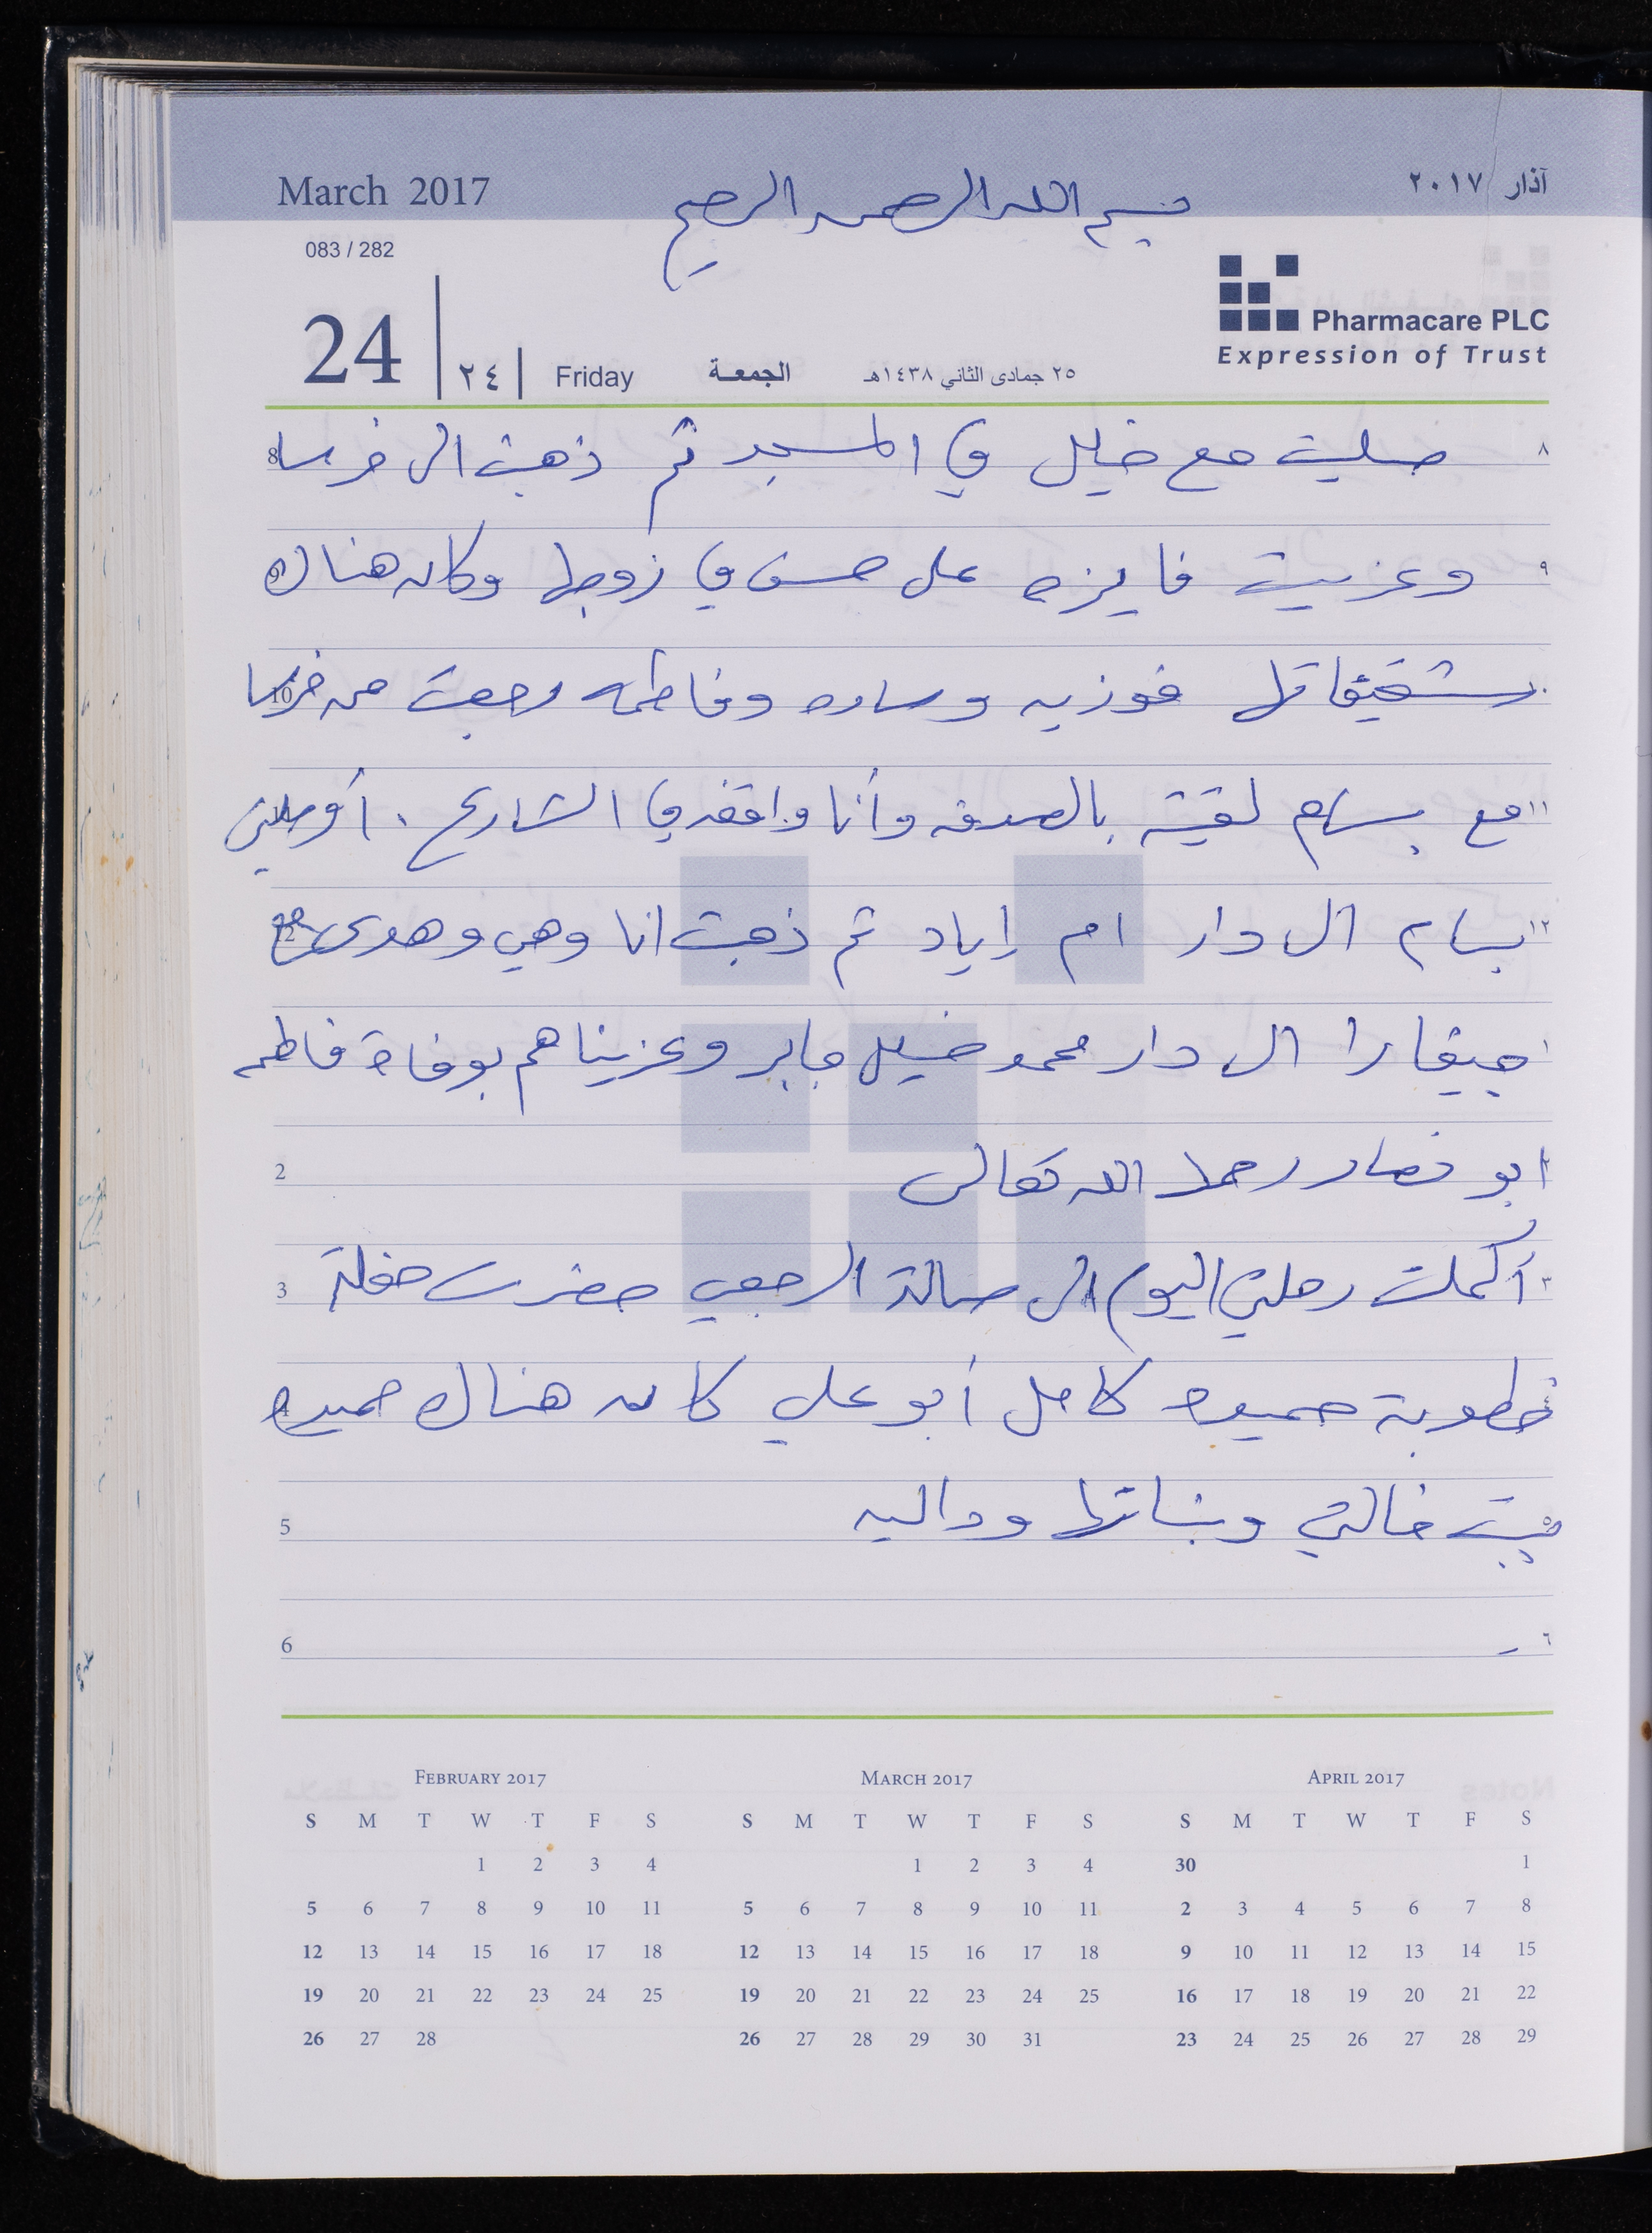 March 2017
بسم الله الرحمن الرحيم
آذار ٢٠١٧
083 / 282
Pharmacare PLC
Expression of Trust
24 ٢٤ Friday الجمعة ٢٥ جمادى الثاني ١٤٣٨هـ
٨ صليت مع خليل في المسجد ثم ذهبت الى خربثا 8
٩ وعزيت فايزه على حسن في زوجها وكان هناك 9
شقيقاتها فوزيه وساره وفاطمه رجعت من خربثا 10
١١ مع بسام لقيته بالصدفه وأنا واقفه في الشارع . أوصلني
١٢ بسام الى دار ام إياد ثم ذهبت انا وهي وهدى 12
١ جيفارا الى دار محمد خليل جابر وعزيناهم بوفاة فاطمه
ابو نصار رحمها الله تعالى 2
٣ أكملت رحلتي اليوم الى صالة الرجبي حضرت حفلة 3
خطوبة حميده كامل أبو علي كان هناك حميده 4
٥ بنت خالتي وبناتها وداليه 5
٦ 6
February 2017 March 2017 April 2017
S M T W T F S S M T W T F S S M T W T F S
1 2 3 4 1 2 3 4 30 1
5 6 7 8 9 10 11 5 6 7 8 9 10 11 2 3 4 5 6 7 8
12 13 14 15 16 17 18 12 13 14 15 16 17 18 9 10 11 12 13 14 15
19 20 21 22 23 24 25 19 20 21 22 23 24 25 16 17 18 19 20 21 22
26 27 28 26 27 28 29 30 31 23 24 25 26 27 28 29